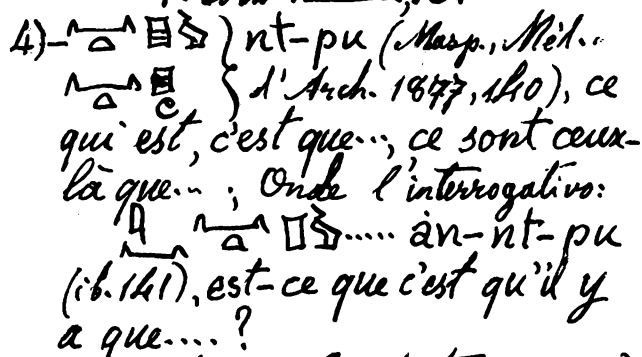 4)- nt-pu (Masp., Mél.
d'Arch. 1877, 140), ce
qui est, c'est que..., ce sont ceux-
là que... ; Onde l'interrogativo:
..... ȧn-nt-pu
(ib. 141), est-ce que c'est qu'il y
a que....?